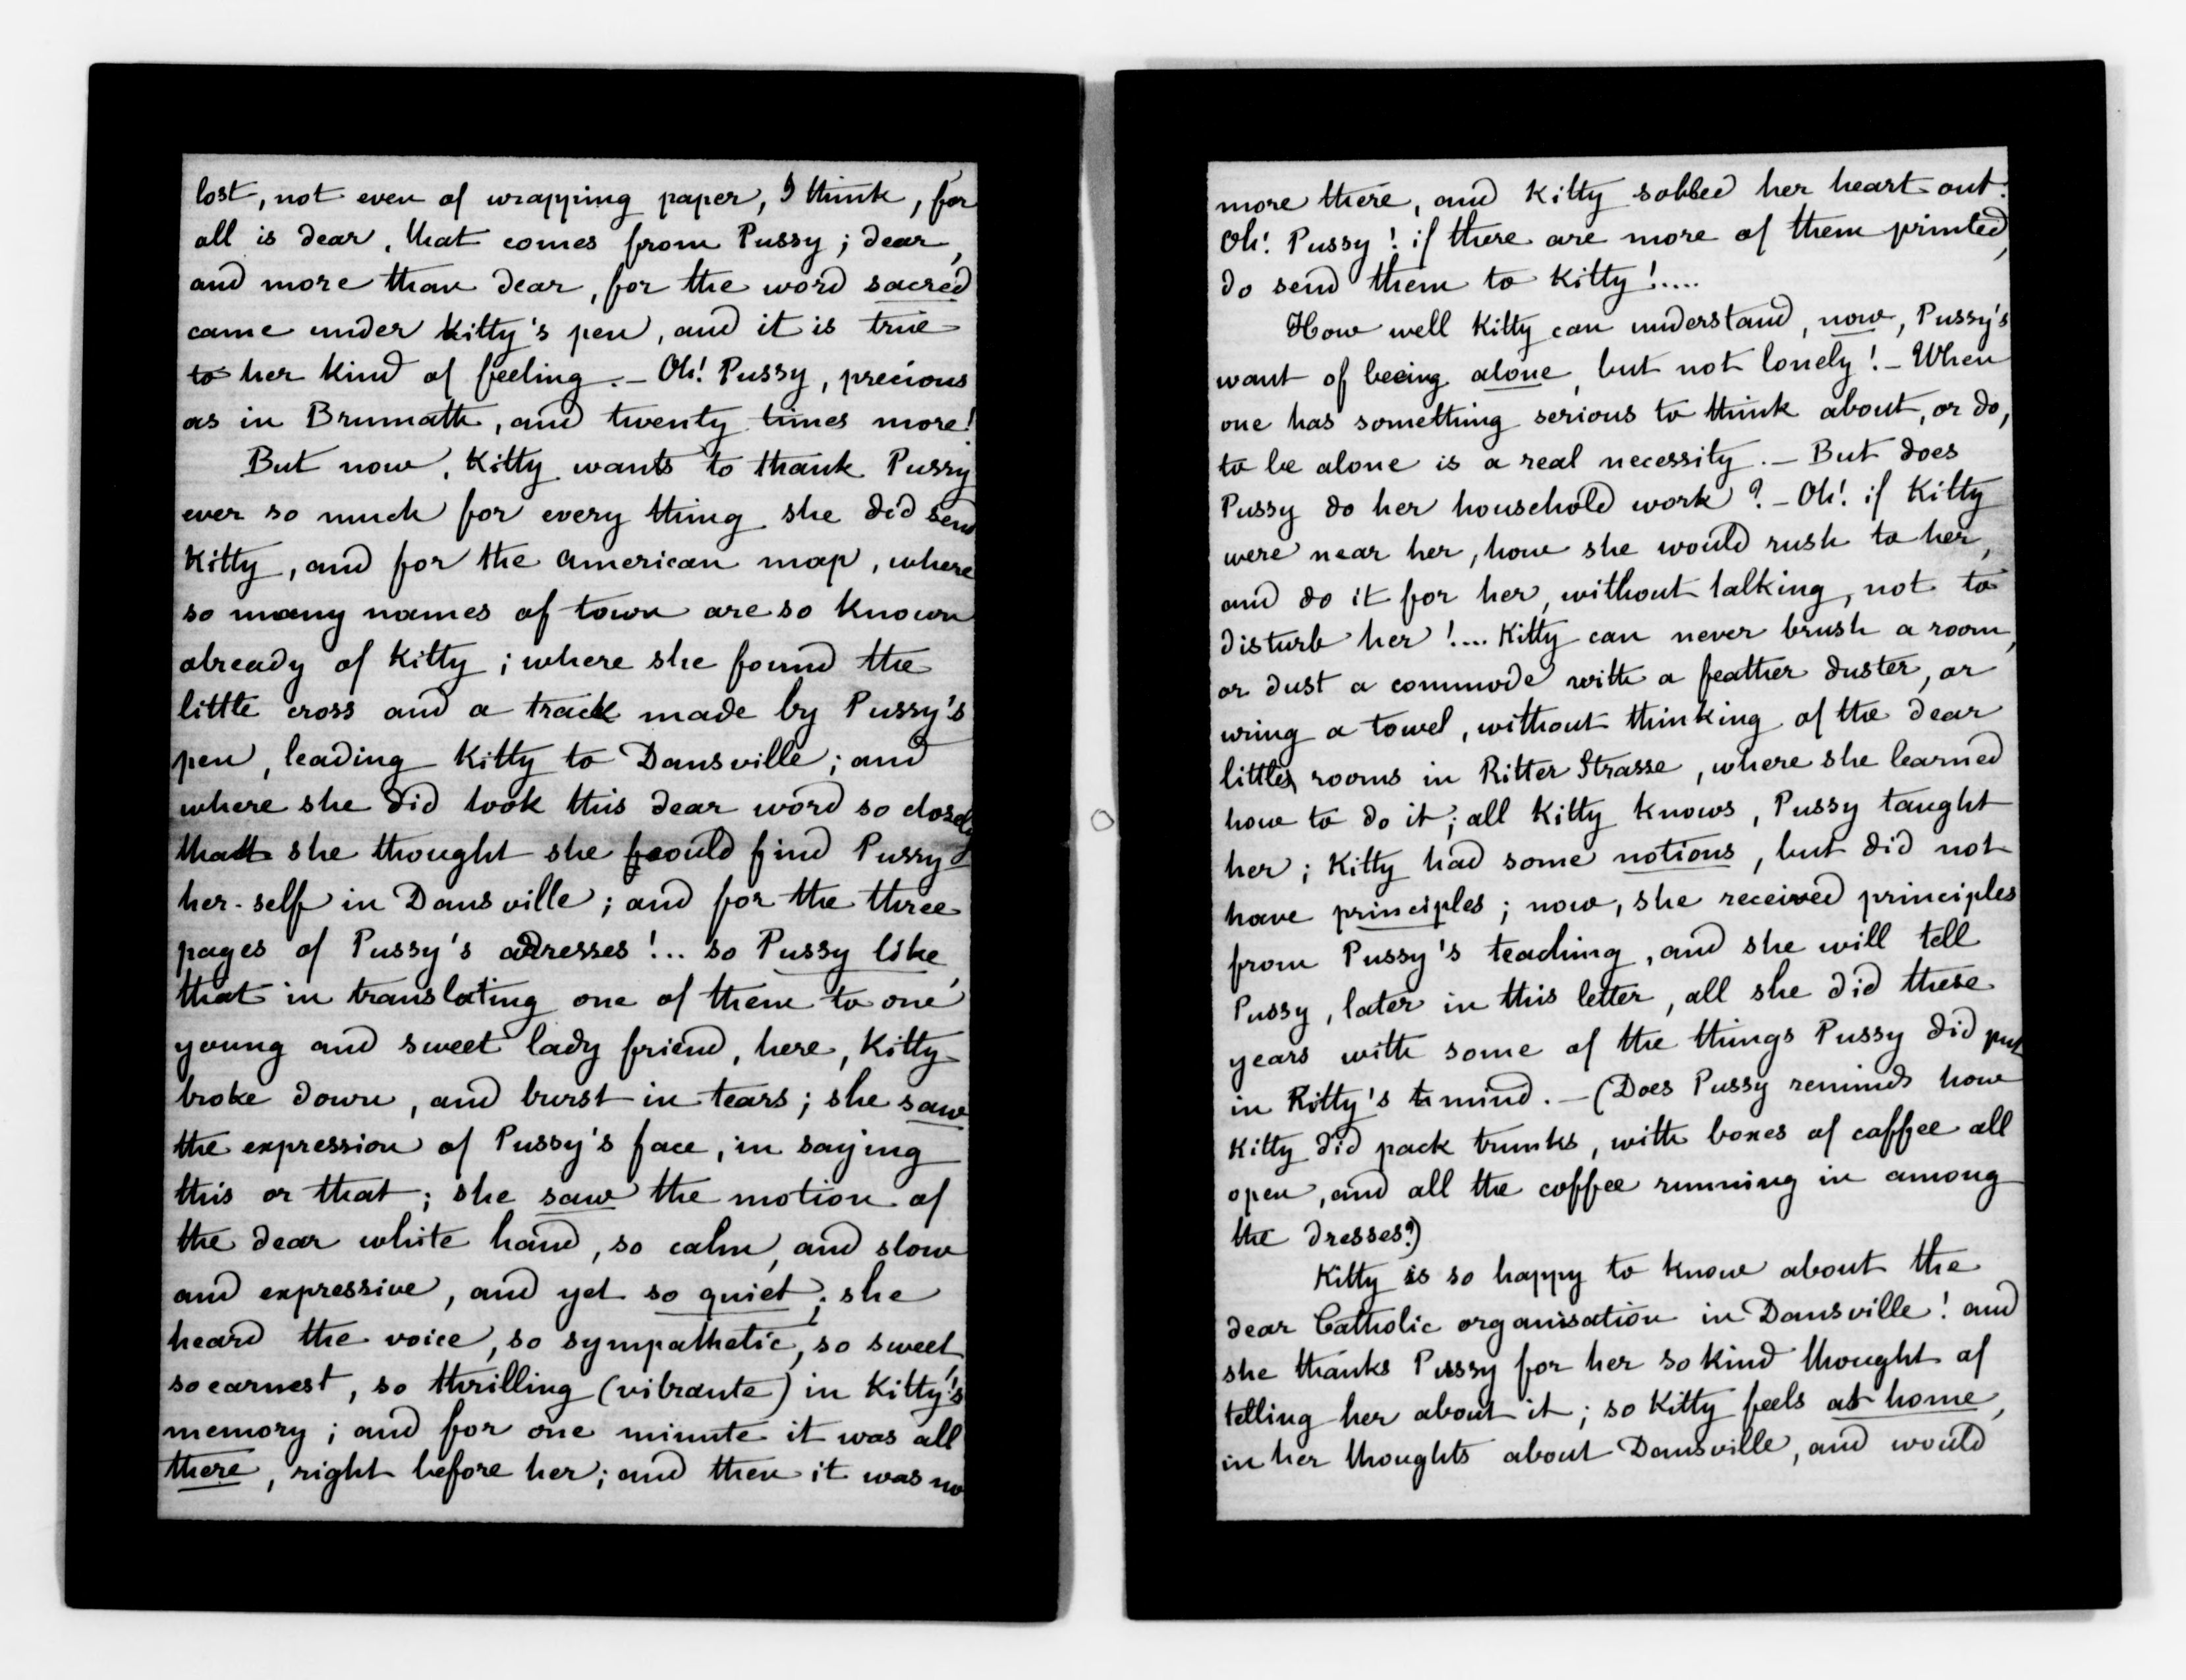 lost, not even of wrapping paper, I think, for
all is dear, that comes from Pussy; dear,
and more than dear, for the word sacred
came under Kitty's pen, and it is true
to her kind of feeling. — Oh! Pussy, precious
as in Brumath, and twenty times more!
But now, Kitty wants to thank Pussy
ever so much for every thing she did send
Kitty, and for the american map, where
so many names of town are so known
already of Kitty; where she found the
little cross and a track made by Pussy's
pen, leading Kitty to Dansville; and
where she did look this dear word so closely
that she thought she could find Pussy
her-self in Dansville; and for the three
pages of Pussy's adresses!.. so Pussy like,
that in translating one of them to one
young and sweet lady friend, here, Kitty
broke down, and burst in tears; she saw
the expression of Pussy's face, in saying
this or that; she saw the motion of
the dear white hand, so calm, and slow
and expressive, and yet so quiet; she
heard the voice, so sympathetic, so sweet,
so earnest, so thrilling (vibrante) in Kitty's
memory; and for one minute it was all
there, right before her; and then it was no
more there, and Kitty sobbed her heart out.
Oh! Pussy! if there are more of them printed,
do send them to Kitty!....
How well Kitty can understand, now, Pussy's
want of beeing alone, but not lonely! — When
one has something serious to think about, or do,
to be alone is a real necessity. — But does
Pussy do her household work? — Oh! if Kitty
were near her, how she would rush to her,
and do it for her, without talking, not to
disturb her!.... Kitty can never brush a room,
or dust a commode with a feather duster, or
wring a towel, without thinking of the dear
little rooms in Ritter Strasse, where she learned
how to do it; all Kitty knows, Pussy taught
her; Kitty had some notions, but did not
have principles; now, she received principles
from Pussy's teaching, and she will tell
Pussy, later in this letter, all she did these
years with some of the things Pussy did put
in Kitty's mind. — (Does Pussy reminds how
Kitty did pack trunks, with boxes of caffee all
open, and all the coffee running in among
the dresses?)
Kitty is so happy to know about the
dear Catholic organisation in Dansville! and
she thanks Pussy for her so kind thought of
telling her about it; so Kitty feels at home,
in her thoughts about Dansville, and would